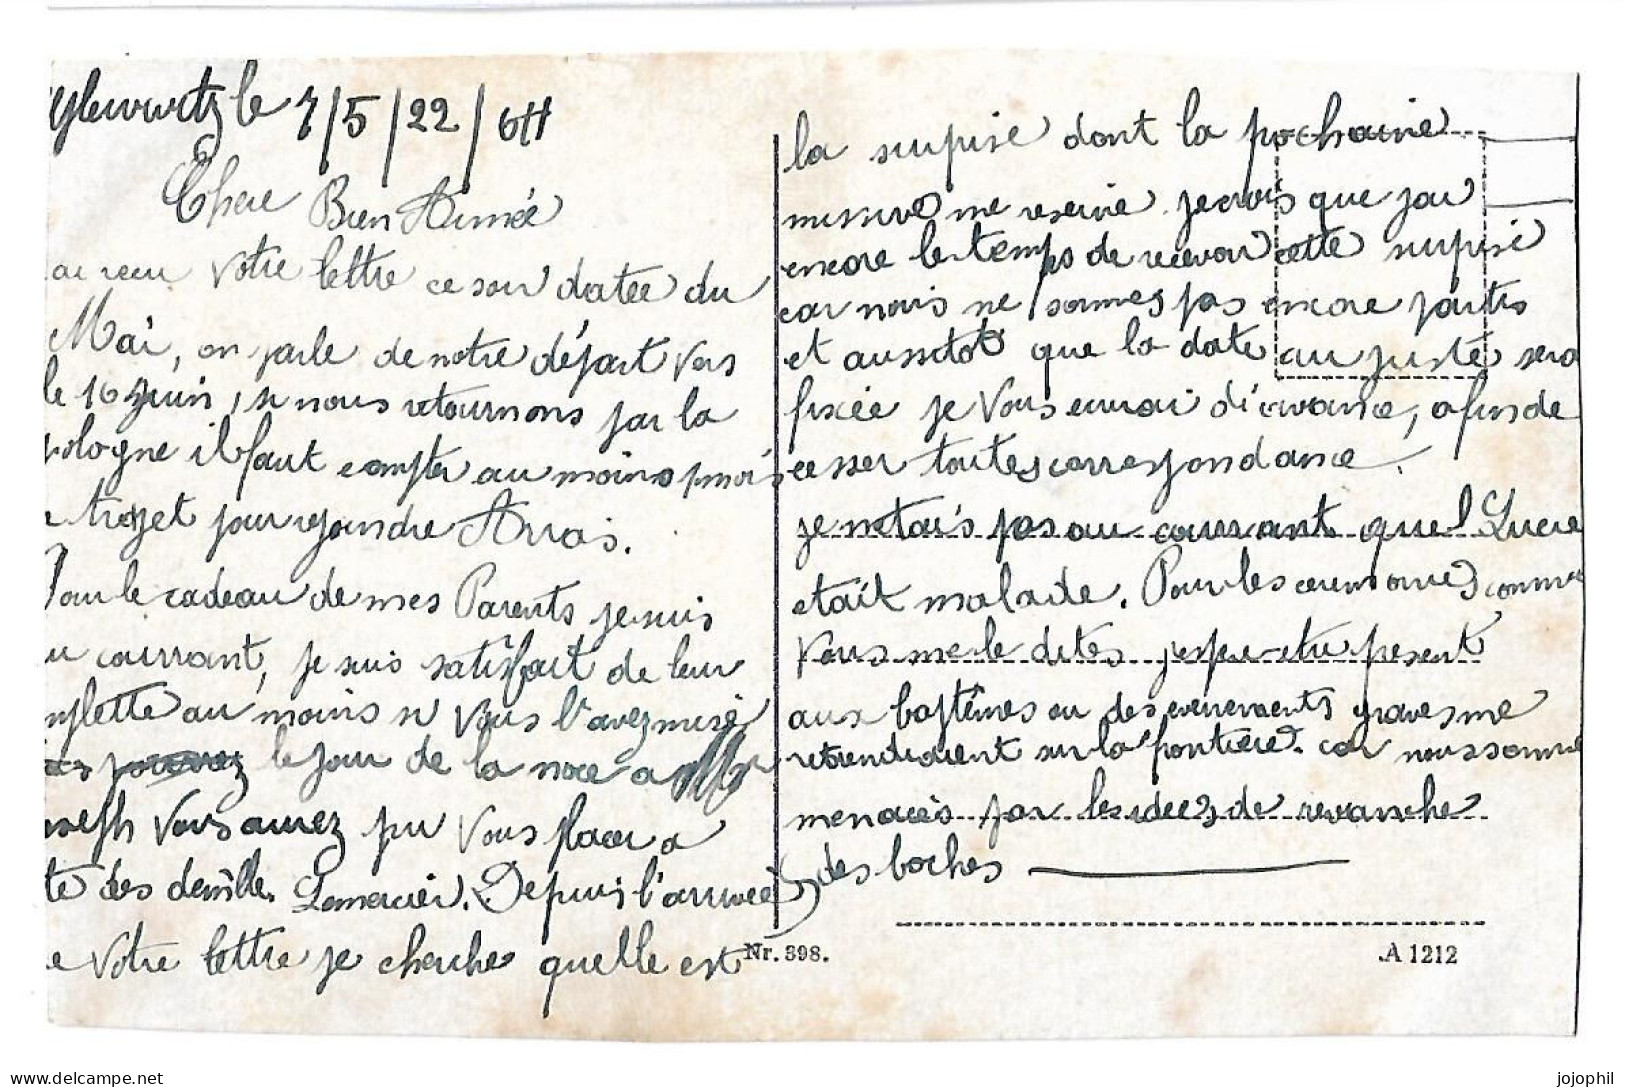 le 7/5/22/6H
Chere Bien Aimée
ai recu Votre lettre ce soir datée du
Mai, on parle de notre départ Vers
le 16 Juin, si nous retournons par la
ologne il faut compter au moins 1 mois
trajet pour rejoindre Arras.
Pour le cadeau de mes Parents je suis
u courrant, je suis satisfait de leur
mplette au moins si Vous l'avez mise
le jour de la noce a
oseph Vous aurez pu Vous placer a
te des demlle. Lemercier. Depuis l'arrivée
e Votre lettre je cherche quelle est
la surpise dont la pochaine
missive me reserve. je crois que j'ai
encore le temps de recevoir cette surpise
car nous ne sommes pas encore partis
et aussitot que la date au juste sera
fixée je Vous ecrirai d'avance, afin de
cesser toutes correspondance.
je n'etais pas au courrant que Lucie
etait malade. Pour les ceremonies comme
Vous me le dites j'espere etre present
aux baptêmes ou des evenements graves me
retiendraient sur la frontiere. car nous somme
menacés par les idees de revanche
des boches
Nr. 398.
A 1212
jojophil
www.delcampe.net